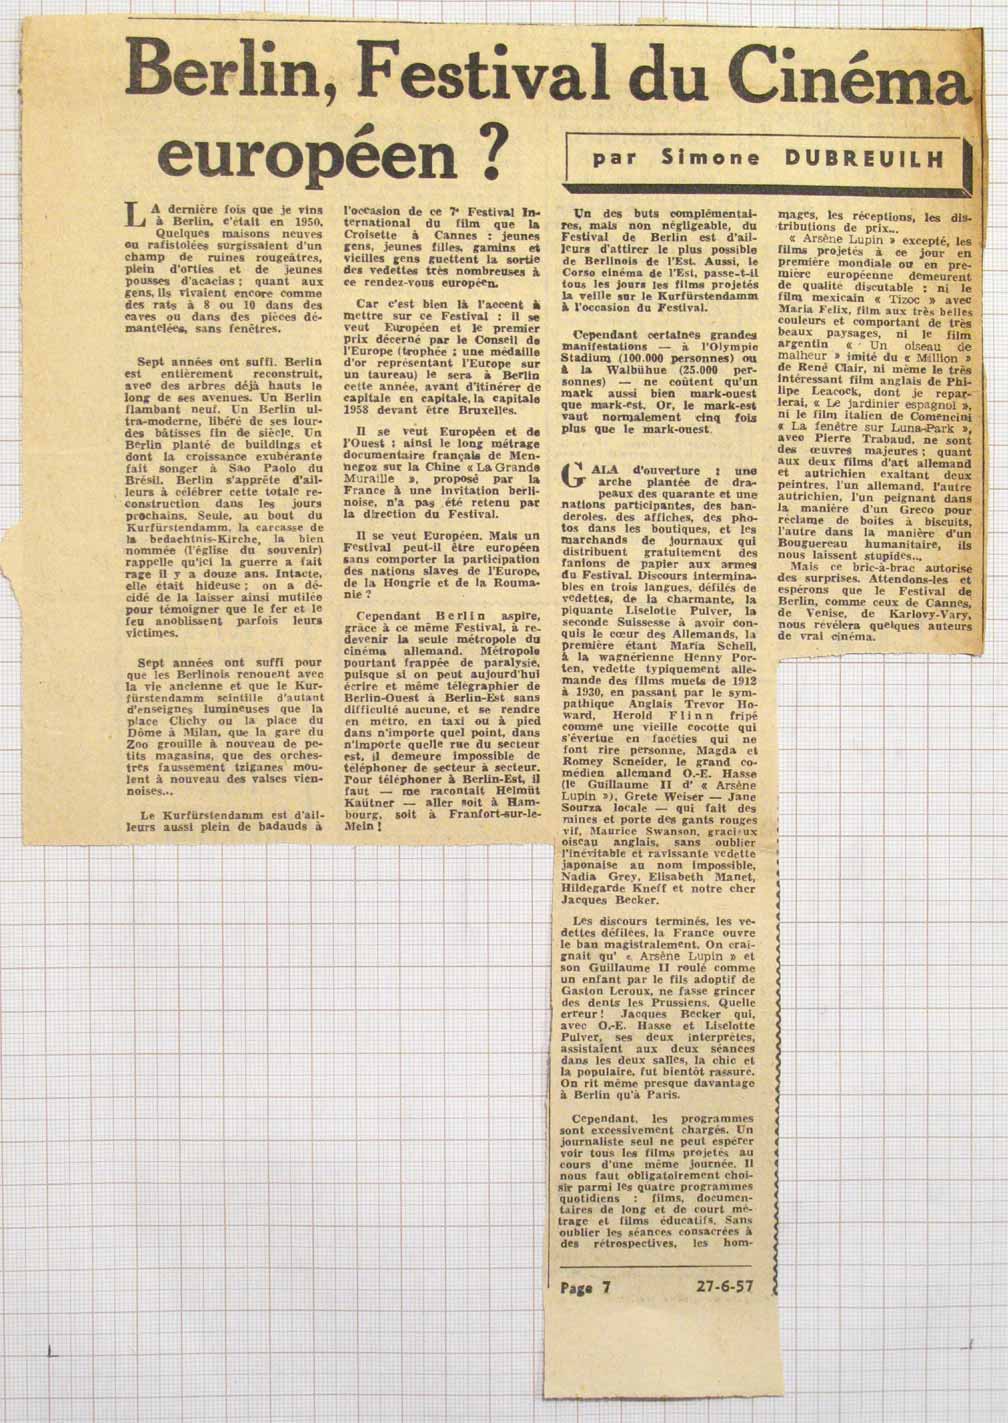 Berlin, Festival du Cinéma
européen ?
par Simone DUBREUILH
LA dernière fois que je vins
à Berlin, c'était en 1950.
Quelques maisons neuves
ou rafistolées surgissaient d'un
champ de ruines rougeâtres,
plein d'orties et de jeunes
pousses d'acacias ; quant aux
gens, ils vivaient encore comme
des rats à 8 ou 10 dans des
caves ou dans des pièces dé-
mantelées, sans fenêtres.
Sept années ont suffi. Berlin
est entièrement reconstruit,
avec des arbres déjà hauts le
long de ses avenues. Un Berlin
flambant neuf. Un Berlin ul-
tra-moderne, libéré de ses lour-
des bâtisses fin de siècle. Un
Berlin planté de buildings et
dont la croissance exubérante
fait songer à Sao Paolo du
Brésil. Berlin s'apprête d'ail-
leurs à célébrer cette totale re-
construction dans les jours
prochains. Seule, au bout du
Kurfürstendamm, la carcasse de
la bedachtnis-Kirche, la bien
nommée (l'église du souvenir)
rappelle qu'ici la guerre a fait
rage il y a douze ans. Intacte,
elle était hideuse ; on a dé-
cidé de la laisser ainsi mutilée
pour témoigner que le fer et le
feu anoblissent parfois leurs
victimes.
Sept années ont suffi pour
que les Berlinois renouent avec
la vie ancienne et que le Kur-
fürstendamm scintille d'autant
d'enseignes lumineuses que la
place Clichy ou la place du
Dôme à Milan, que la gare du
Zoo grouille à nouveau de pe-
tits magasins, que des orches-
tres faussement tziganes mou-
lent à nouveau des valses vien-
noises...
Le Kurfürstendamm est d'ail-
leurs aussi plein de badauds à
l'occasion de ce 7e Festival In-
ternational du film que la
Croisette à Cannes : jeunes
gens, jeunes filles, gamins et
vieilles gens guettent la sortie
des vedettes très nombreuses à
ce rendez-vous européen.
Car c'est bien là l'accent à
mettre sur ce Festival : il se
veut Européen et le premier
prix décerné par le Conseil de
l'Europe (trophée : une médaille
d'or représentant l'Europe sur
un taureau) le sera à Berlin
cette année, avant d'itinérer de
capitale en capitale, la capitale
1958 devant être Bruxelles.
Il se veut Européen et de
l'Ouest : ainsi le long métrage
documentaire français de Men-
negoz sur la Chine « La Grande
Muraille », proposé par la
France à une invitation berli-
noise, n'a pas été retenu par
la direction du Festival.
Il se veut Européen. Mais un
Festival peut-il être européen
sans comporter la participation
des nations slaves de l'Europe,
de la Hongrie et de la Rouma-
nie ?
Cependant Berlin aspire,
grâce à ce même Festival, à re-
devenir la seule métropole du
cinéma allemand. Métropole
pourtant frappée de paralysie,
puisque si on peut aujourd'hui
écrire et même télégraphier de
Berlin-Ouest à Berlin-Est sans
difficulté aucune, et se rendre
en métro, en taxi ou à pied
dans n'importe quel point, dans
n'importe quelle rue du secteur
est, il demeure impossible de
téléphoner de secteur à secteur.
Pour téléphoner à Berlin-Est, il
faut — me racontait Helmüt
Kaütner — aller soit à Ham-
bourg, soit à Franfort-sur-le-
Mein !
Un des buts complémentai-
res, mais non négligeable, du
Festival de Berlin est d'ail-
leurs d'attirer le plus possible
de Berlinois de l'Est. Aussi, le
Corso cinéma de l'Est, passe-t-il
tous les jours les films projetés
la veille sur le Kurfürstendamm
à l'occasion du Festival.
Cependant certaines grandes
manifestations — à l'Olympie
Stadium (100.000 personnes) ou
à la Walbühue (25.000 per-
sonnes) — ne coûtent qu'un
mark aussi bien mark-ouest
que mark-est. Or, le mark-est
vaut normalement cinq fois
plus que le mark-ouest.
GALA d'ouverture : une
arche plantée de dra-
peaux des quarante et une
nations participantes, des ban-
deroles, des affiches, des pho-
tos dans les boutiques, et les
marchands de journaux qui
distribuent gratuitement des
fanions de papier aux armes
du Festival. Discours intermina-
bles en trois langues, défilés de
vedettes, de la charmante, la
piquante Liselotte Pulver, la
seconde Suissesse à avoir con-
quis le cœur des Allemands, la
première étant Maria Schell,
à la wagnérienne Henny Por-
ten, vedette typiquement alle-
mande des films muets de 1912
à 1930, en passant par le sym-
pathique Anglais Trevor Ho-
ward, Herold Flinn fripé
comme une vieille cocotte qui
s'évertue en facéties qui ne
font rire personne, Magda et
Romey Scneider, le grand co-
médien allemand O.-E. Hasse
(le Guillaume II d' « Arsène
Lupin »), Grete Weiser — Jane
Sourza locale — qui fait des
mines et porte des gants rouges
vif, Maurice Swanson, gracieux
oiseau anglais, sans oublier
l'inévitable et ravissante vedette
japonaise au nom impossible,
Nadia Grey, Elisabeth Manet,
Hildegarde Kneff et notre cher
Jacques Becker.
Les discours terminés, les ve-
dettes défilées, la France ouvre
le ban magistralement. On crai-
gnait qu' « Arsène Lupin » et
son Guillaume II roulé comme
un enfant par le fils adoptif de
Gaston Leroux, ne fasse grincer
des dents les Prussiens. Quelle
erreur ! Jacques Becker qui,
avec O.-E. Hasse et Liselotte
Pulver, ses deux interprètes,
assistaient aux deux séances
dans les deux salles, la chic et
la populaire, fut bientôt rassuré.
On rit même presque davantage
à Berlin qu'à Paris.
Cependant, les programmes
sont excessivement chargés. Un
journaliste seul ne peut espérer
voir tous les films projetés au
cours d'une même journée. Il
nous faut obligatoirement choi-
sir parmi les quatre programmes
quotidiens : films, documen-
taires de long et de court mé-
trage et films éducatifs. Sans
oublier les séances consacrées à
des rétrospectives, les hom-
mages, les réceptions, les dis-
tributions de prix...
« Arsène Lupin » excepté, les
films projetés à ce jour en
première mondiale ou en pre-
mière européenne demeurent
de qualité discutable : ni le
film mexicain « Tizoc » avec
Maria Felix, film aux très belles
couleurs et comportant de très
beaux paysages, ni le film
argentin « Un oiseau de
malheur » imité du « Million »
de René Clair, ni même le très
intéressant film anglais de Phi-
lipe Leacock, dont je repar-
lerai, « Le jardinier espagnol »,
ni le film italien de Comencini
« La fenêtre sur Luna-Park »,
avec Pierre Trabaud, ne sont
des œuvres majeures ; quant
aux deux films d'art allemand
et autrichien exaltant deux
peintres, l'un allemand, l'autre
autrichien, l'un peignant dans
la manière d'un Greco pour
réclame de boîtes à biscuits,
l'autre dans la manière d'un
Bouguereau humanitaire, ils
nous laissent stupides...
Mais ce bric-à-brac autorise
des surprises. Attendons-les et
espérons que le Festival de
Berlin, comme ceux de Cannes,
de Venise, de Karlovy-Vary,
nous révélera quelques auteurs
de vrai cinéma.
Page 7 27-6-57